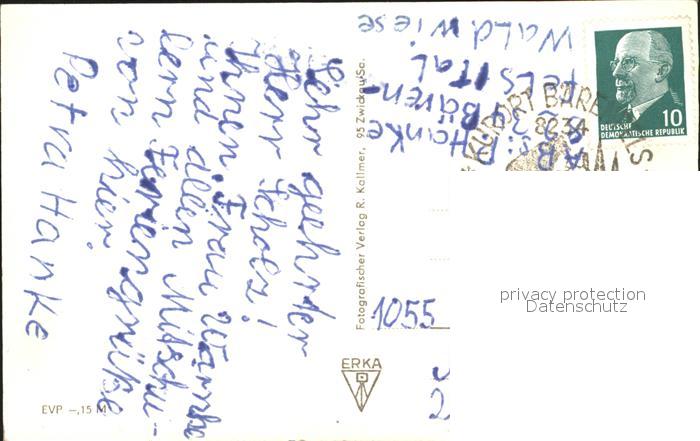 Sehr geehrter
Herr Scholz!
Ihnen, Frau
und allen Mitschü-
lern Feriengrüße
von hier.
Petra Hanke
Abs: P. Hanke
8234 Bären-
felstal
Waldwiese
KURORT BÄRENFELS
8234
10
DEUTSCHE
DEMOKRATISCHE REPUBLIK
Fotografischer Verlag R. Kallmer, 95 Zwickau/Sa.
1055
2
privacy protection
Datenschutz
ERKA
EVP –,15 M